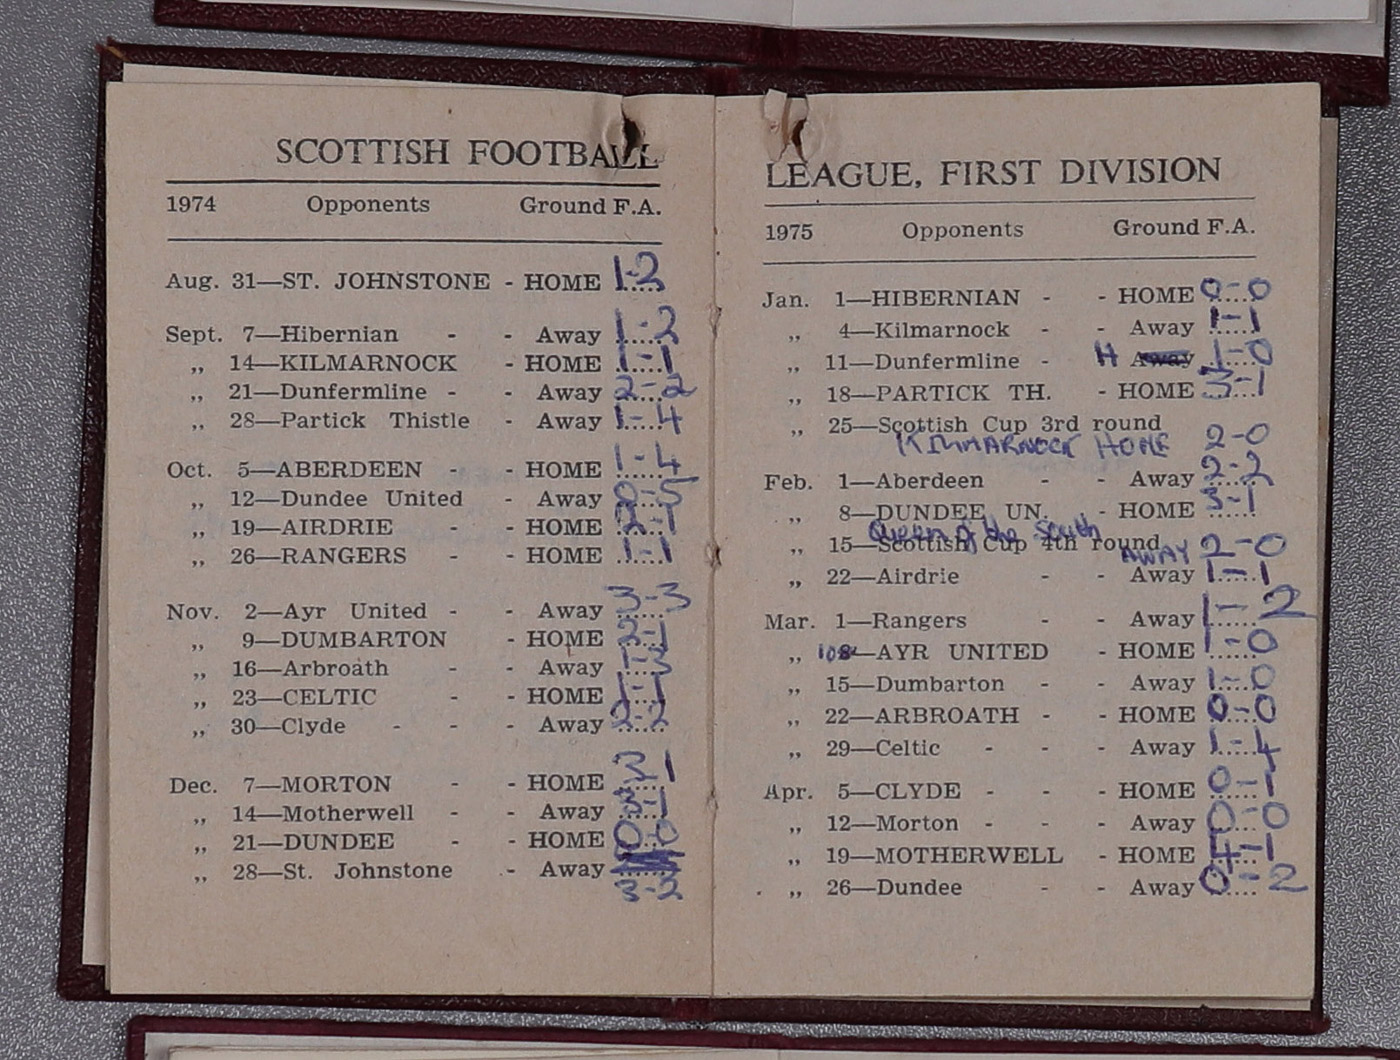 SCOTTISH FOOTBALL
1974 Opponents Ground F.A.
Aug. 31—ST. JOHNSTONE - HOME 1-2
Sept. 7—Hibernian - - Away 1-2
„ 14—KILMARNOCK - HOME 1-1
„ 21—Dunfermline - - Away 2-2
„ 28—Partick Thistle - Away 1-4
Oct. 5—ABERDEEN - - HOME 1-4
„ 12—Dundee United - Away 0-5
„ 19—AIRDRIE - - HOME 2-1
„ 26—RANGERS - - HOME 1-1
Nov. 2—Ayr United - - Away 3-3
„ 9—DUMBARTON - HOME 2-1
„ 16—Arbroath - - Away 1-3
„ 23—CELTIC - - HOME 1-1
„ 30—Clyde - - - Away 2-2
Dec. 7—MORTON - - HOME 3-1
„ 14—Motherwell - - Away 3-1
„ 21—DUNDEE - - HOME 0-0
„ 28—St. Johnstone - Away
3-2
LEAGUE, FIRST DIVISION
1975 Opponents Ground F.A.
Jan. 1—HIBERNIAN - - HOME 0-0
„ 4—Kilmarnock - - Away 1-1
„ 11—Dunfermline - H Away 1-0
„ 18—PARTICK TH. - HOME 3-1
„ 25—Scottish Cup 3rd round
KILMARNOCK HOME 2-0
Feb. 1—Aberdeen - - Away 2-2
„ 8—DUNDEE UN. - HOME 3-1
Queen of the South
„ 15—Scottish Cup 4th round AWAY 2-0
„ 22—Airdrie - - Away 1-1
Mar. 1—Rangers - - Away 1-2
„ 108—AYR UNITED - HOME 1-0
„ 15—Dumbarton - - Away 1-0
„ 22—ARBROATH - - HOME 0-0
„ 29—Celtic - - - Away 1-4
Apr. 5—CLYDE - - - HOME 0-1
„ 12—Morton - - - Away 0-0
„ 19—MOTHERWELL - HOME 4-1
„ 26—Dundee - - Away 0-2